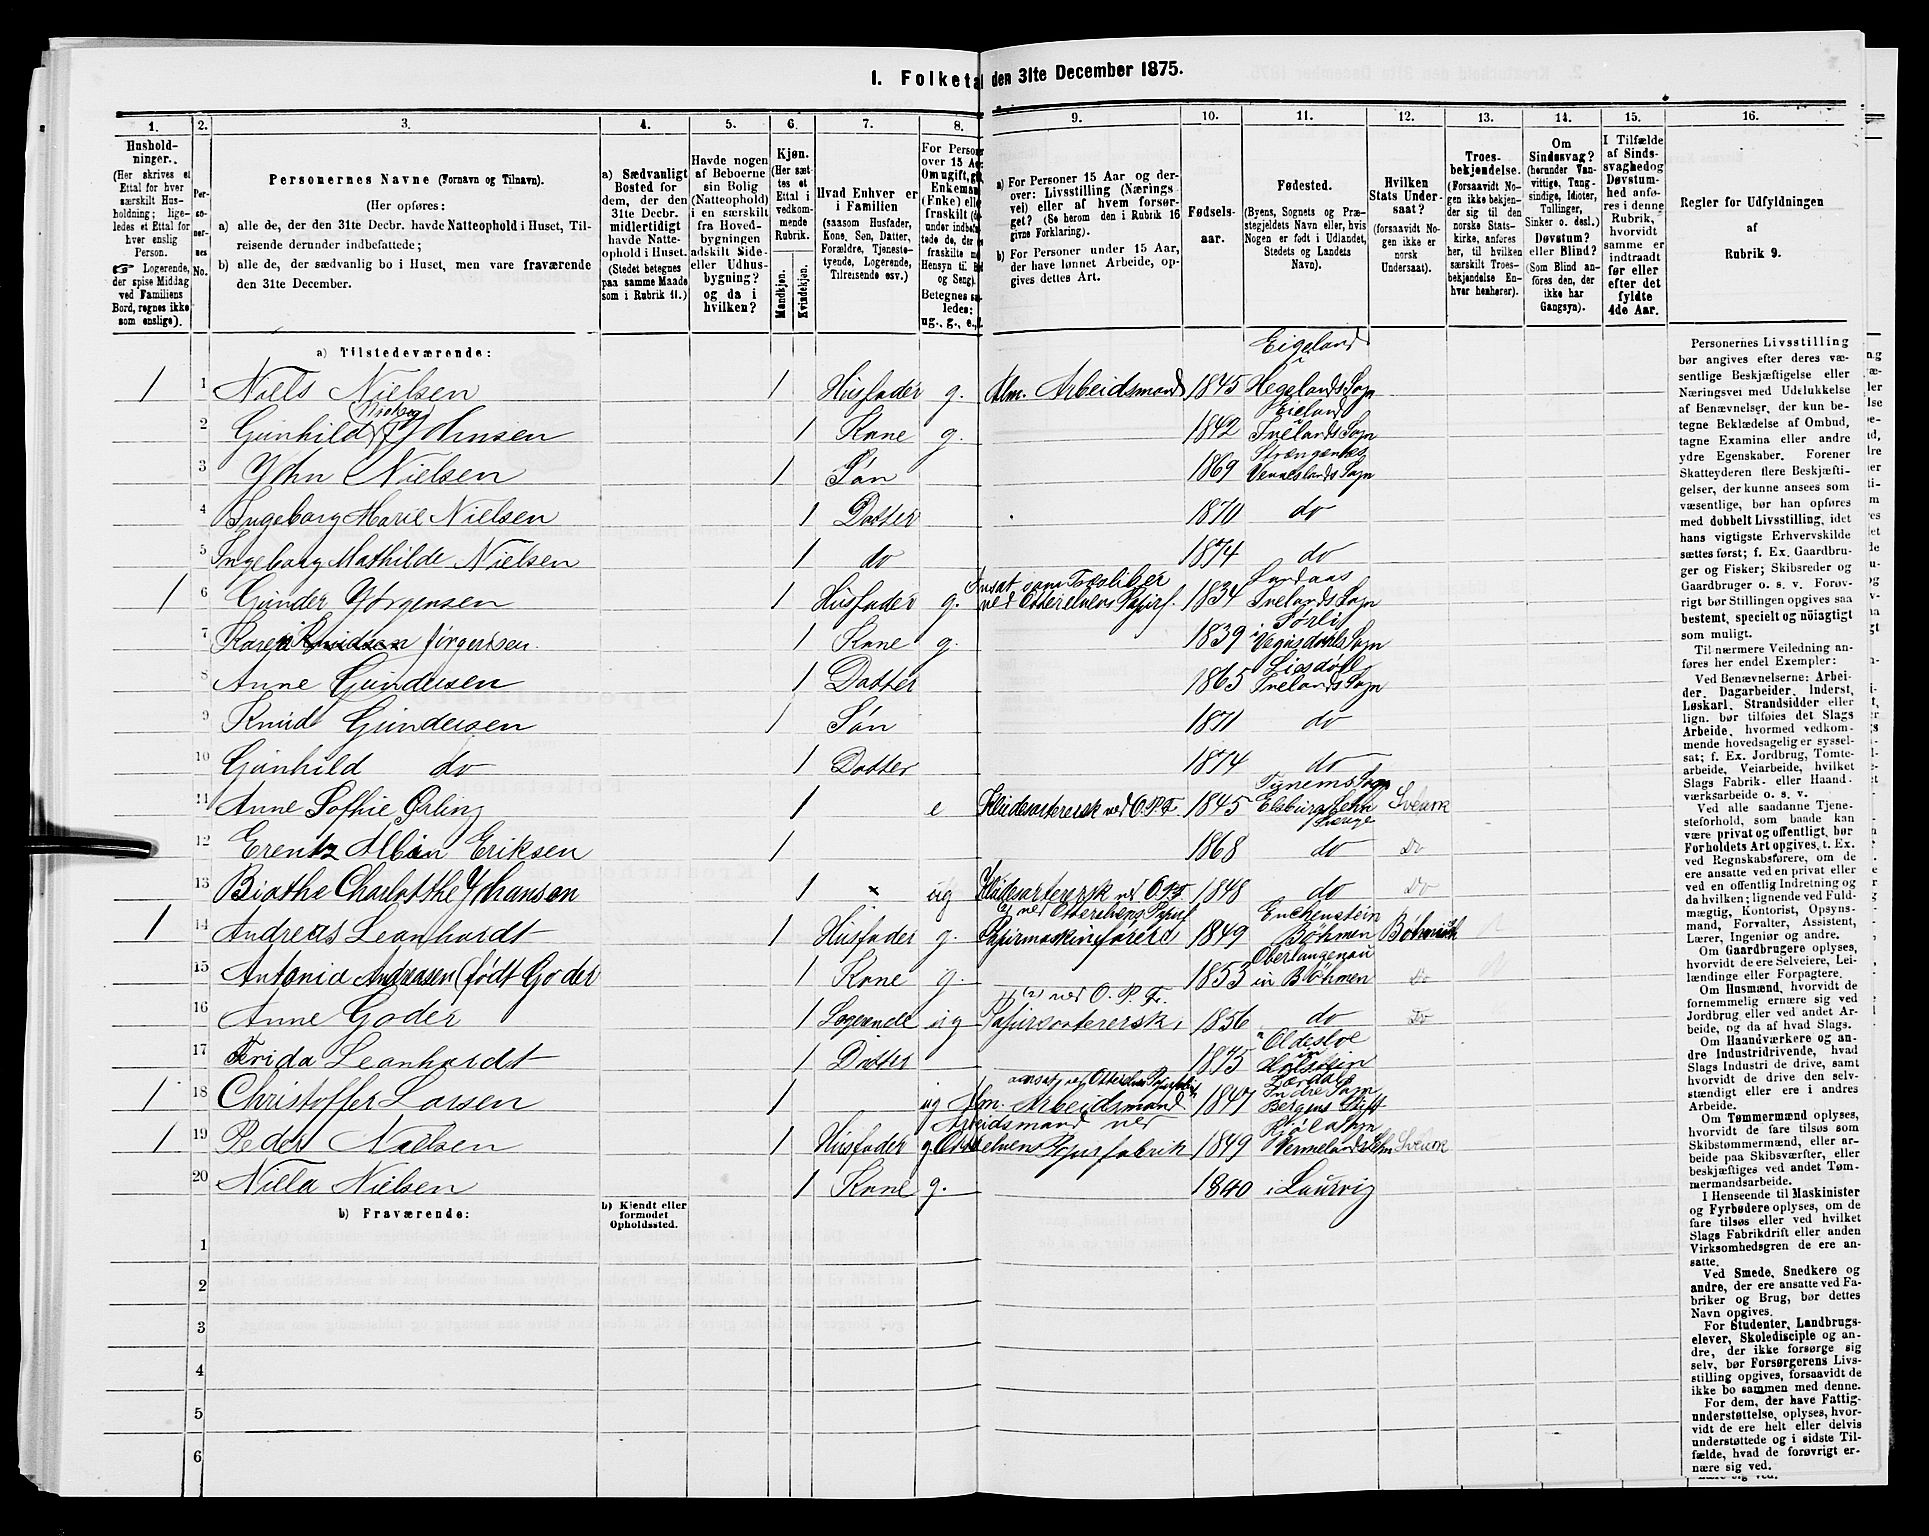 I. Folketal den 31te December 1875.
1. 2. 3. 4. 5. 6. 7. 8. 9. 10. 11. 12. 13. 14. 15. 16.
Hushold-
ninger.
(Her skrives et
Ettal for hver
særskilt Hus-
holdning; lige-
ledes et Ettal for
hver enslig
Person.
☞ Logerende,
der spise Middag
ved Familiens
Bord, regnes ikke
som enslige).
Per-
so-
ner-
nes
No.
Personernes Navne (Fornavn og Tilnavn).
(Her opføres:
a) alle de, der den 31te Decbr. havde Natteophold i Huset, Til-
reisende derunder indbefattede;
b) alle de, der sædvanlig bo i Huset, men vare fraværende
den 31te December.
a) Sædvanligt
Bosted for
dem, der den
31te Decbr.
midlertidigt
havde Natte-
ophold i Huset.
(Stedet betegnes
paa samme Maade
som i Rubrik 11.)
Havde nogen
af Beboerne
sin Bolig
(Natteophold)
i en særskilt
fra Hoved-
bygningen
adskilt Side-
eller Udhus-
bygning?
og da i
hvilken?
Kjøn.
(Her sæt-
tes et
Ettal i
vedkom-
mende
Rubrik.
Mandkjøn.
Kvindekjøn.
Hvad Enhver er
i Familien
(saasom Husfader,
Kone, Søn, Datter,
Forældre, Tjeneste-
tyende, Logerende,
Tilreisende osv.)
For Person
over 15 Aa
Om ugift, gi
Enkeman
(Enke) elle
fraskilt
Betegnes sa-
ledes:
ug., g., e., f.
a) For Personer 15 Aar og der-
over: Livsstilling (Nærings-
vei) eller af hvem forsør-
get? (Se herom den i Rubrik 16
givne Forklaring).
b) For Personer under 15 Aar,
der have lønnet Arbeide, op-
gives dettes Art.
Fødsels-
aar.
Fødested.
(Byens, Sognets og Præ-
stegjeldets Navn eller, hvis
Nogen er født i Udlandet,
Stedets og Landets
Navn).
Hvilken
Stats Under-
saat?
(forsaavidt No-
gen ikke er
norsk
Undersaat).
Troes-
bekjendelse.
(Forsaavidt No-
gen ikke bekjen-
der sig til den
norske Stats-
kirke, anføres
her, til hvilken
særskilt Troes-
bekjendelse En-
hver henhører).
Om
Sindssvag?
(herunder Van-
vittige, Tung-
sindige, Idioter,
Tullinger,
Sinker o. desl.)
Døvstum?
eller Blind?
(Som Blind an-
føres den, der
ikke har
Gangsyn).
I Tilfælde
af Sinds-
svaghed og
Døvstum-
hed anfø-
res i denne
Rubrik,
hvorvidt
samme er
indtraadt
før eller
efter det
fyldte
4de Aar.
Regler for Udfyldningen
af
Rubrik 9.
a) Tilstedeværende:
1 1 Niels Nielsen 1 Husfader g. Alm. Arbeidsmand 1845 Eigeland i Hegelands Sogn
2 Gunhild Johnsen 1 Kone g. 1842 Eieland i Ivelands Sogn
3 John Nielsen 1 Søn 1869 Venneslands Sogn
4 Ingeborg Marie Nielsen 1 Datter 1870 do
5 Ingeborg Mathilde Nielsen 1 do 1874 do
1 6 Gunder Jørgensen 1 Husfader g. Ansat som Træsliber ved Otterelvens Papirf. 1834 Ivelands Sogn
7 Karen Knudsen Jørgensen 1 Kone g. 1839 i Vegusdals Sogn
8 Anne Gundersen 1 Datter 1865 Ivelands Sogn
9 Knud Gundersen 1 Søn 1871 do
10 Gunhild do 1 Datter 1874 do
11 Anne Sofhie Ørling 1 e ved O. P. F. 1845
12 Erentz Albin Eriksen 1 1868 do Do
13 Charlotthe Johansen 1 ug 1848 do Do
1 14 Andreas Leonhardt 1 Husfader g. Papirmaskinfører 1849 Böhmen
15 Antonia Andreasen (født Goder 1 Kone g. 1853 Oberlangenau in Böhmen Do
16 Anne Goder 1 Logerende ug ved O. P. F. Papirsortererske 1856 do Do
17 Frida Leonhardt 1 Datter 1875 Oldesloe in Holstein
1 18 Christoffer Larsen 1 ug Alm. Arbeidsmand 1847 Indre Sogn Bergens Stift
1 19 Peder Nielsen 1 Husfader g. Arbeidsmand ved Otterelvens Papirfabrik 1849
20 Nilla Nielsen 1 Kone g. 1840 i Laurvig
b) Fraværende:
b) Kjendt eller
formodet
Opholdssted.
1
2
3
4
5
6
Personernes Livsstilling
bør angives efter deres væ-
sentlige Beskjæftigelse eller
Næringsvei med Udelukkelse
af Benævnelser, der kun be-
tegne Beklædelse af Ombud,
tagne Examina eller andre
ydre Egenskaber. Forener
Skatteyderen flere Beskjæfti-
gelser, der kunne ansees som
væsentlige, bør han opføres
med dobbelt Livsstilling, idet
hans vigtigste Erhvervskilde
sættes først; f. Ex. Gaardbru-
ger og Fisker; Skibsreder og
Gaardbruger o. s. v. Forøv-
rigt bør Stillingen opgives saa
bestemt, specielt og nøiagtigt
som muligt.
Til nærmere Veiledning an-
føres her endel Exempler:
Ved Benævnelserne: Arbei-
der, Dagarbeider, Inderst,
Løskarl, Strandsidder eller
lign. bør tilføies det Slags
Arbeide, hvormed vedkom-
mende hovedsagelig er syssel-
sat; f. Ex. Jordbrug, Tomte-
arbeide, Veiarbeide, hvilket
Slags Fabrik- eller Haand-
værksarbeide o. s. v.
Ved alle saadanne Tjene-
steforhold, som baade kan
være privat og offentligt, bør
Forholdets Art opgives, t. Ex.
ved Regnskabsførere, om de
ere ansatte ved en privat eller
ved en offentlig Indretning og
da hvilken; lignende ved Fuld-
mægtig, Kontorist, Opsyns-
mand, Forvalter, Assistent,
Lærer, Ingeniør og andre.
Om Gaardbrugere oplyses,
hvorvidt de ere Selveiere, Lei-
lændinge eller Forpagtere.
Om Husmænd, hvorvidt de
fornemmelig ernære sig ved
Jordbrug eller ved andet Ar-
beide, og da af hvad Slags.
Om Haandværkere og an-
dre Industridrivende, hvad
Slags Industri de drive, samt
hvorvidt de drive den selv-
stændigt eller ere i andres
Arbeide.
Om Tømmermænd oplyses,
hvorvidt de fare tilsøs som
Skibstømmermænd, eller ar-
beide paa Skibsværfter, eller
beskjæftiges ved andet Tøm-
mermandsarbeide.
I Henseende til Maskinister
og Fyrbødere oplyses, om de
fare tilsøs eller ved hvilket
Slags Fabrikdrift eller anden
Virksomhedsgren de ere an-
satte.
Ved Smede, Snedkere og
andre, der ere ansatte ved Fa-
briker og Brug, bør dettes
Navn opgives.
For Studenter, Landbrugs-
elever, Skoledisciple og an-
dre, der ikke forsørge sig
selv, bør Forsørgerens Livs-
stilling opgives, forsaavidt de
ikke bo sammen med denne.
For dem, der have Fattig-
understøttelse, oplyses, hvor-
vidt de ere helt eller delvis
understøttede og i sidste Til-
fælde, hvad de forøvrigt er-
nære sig ved.